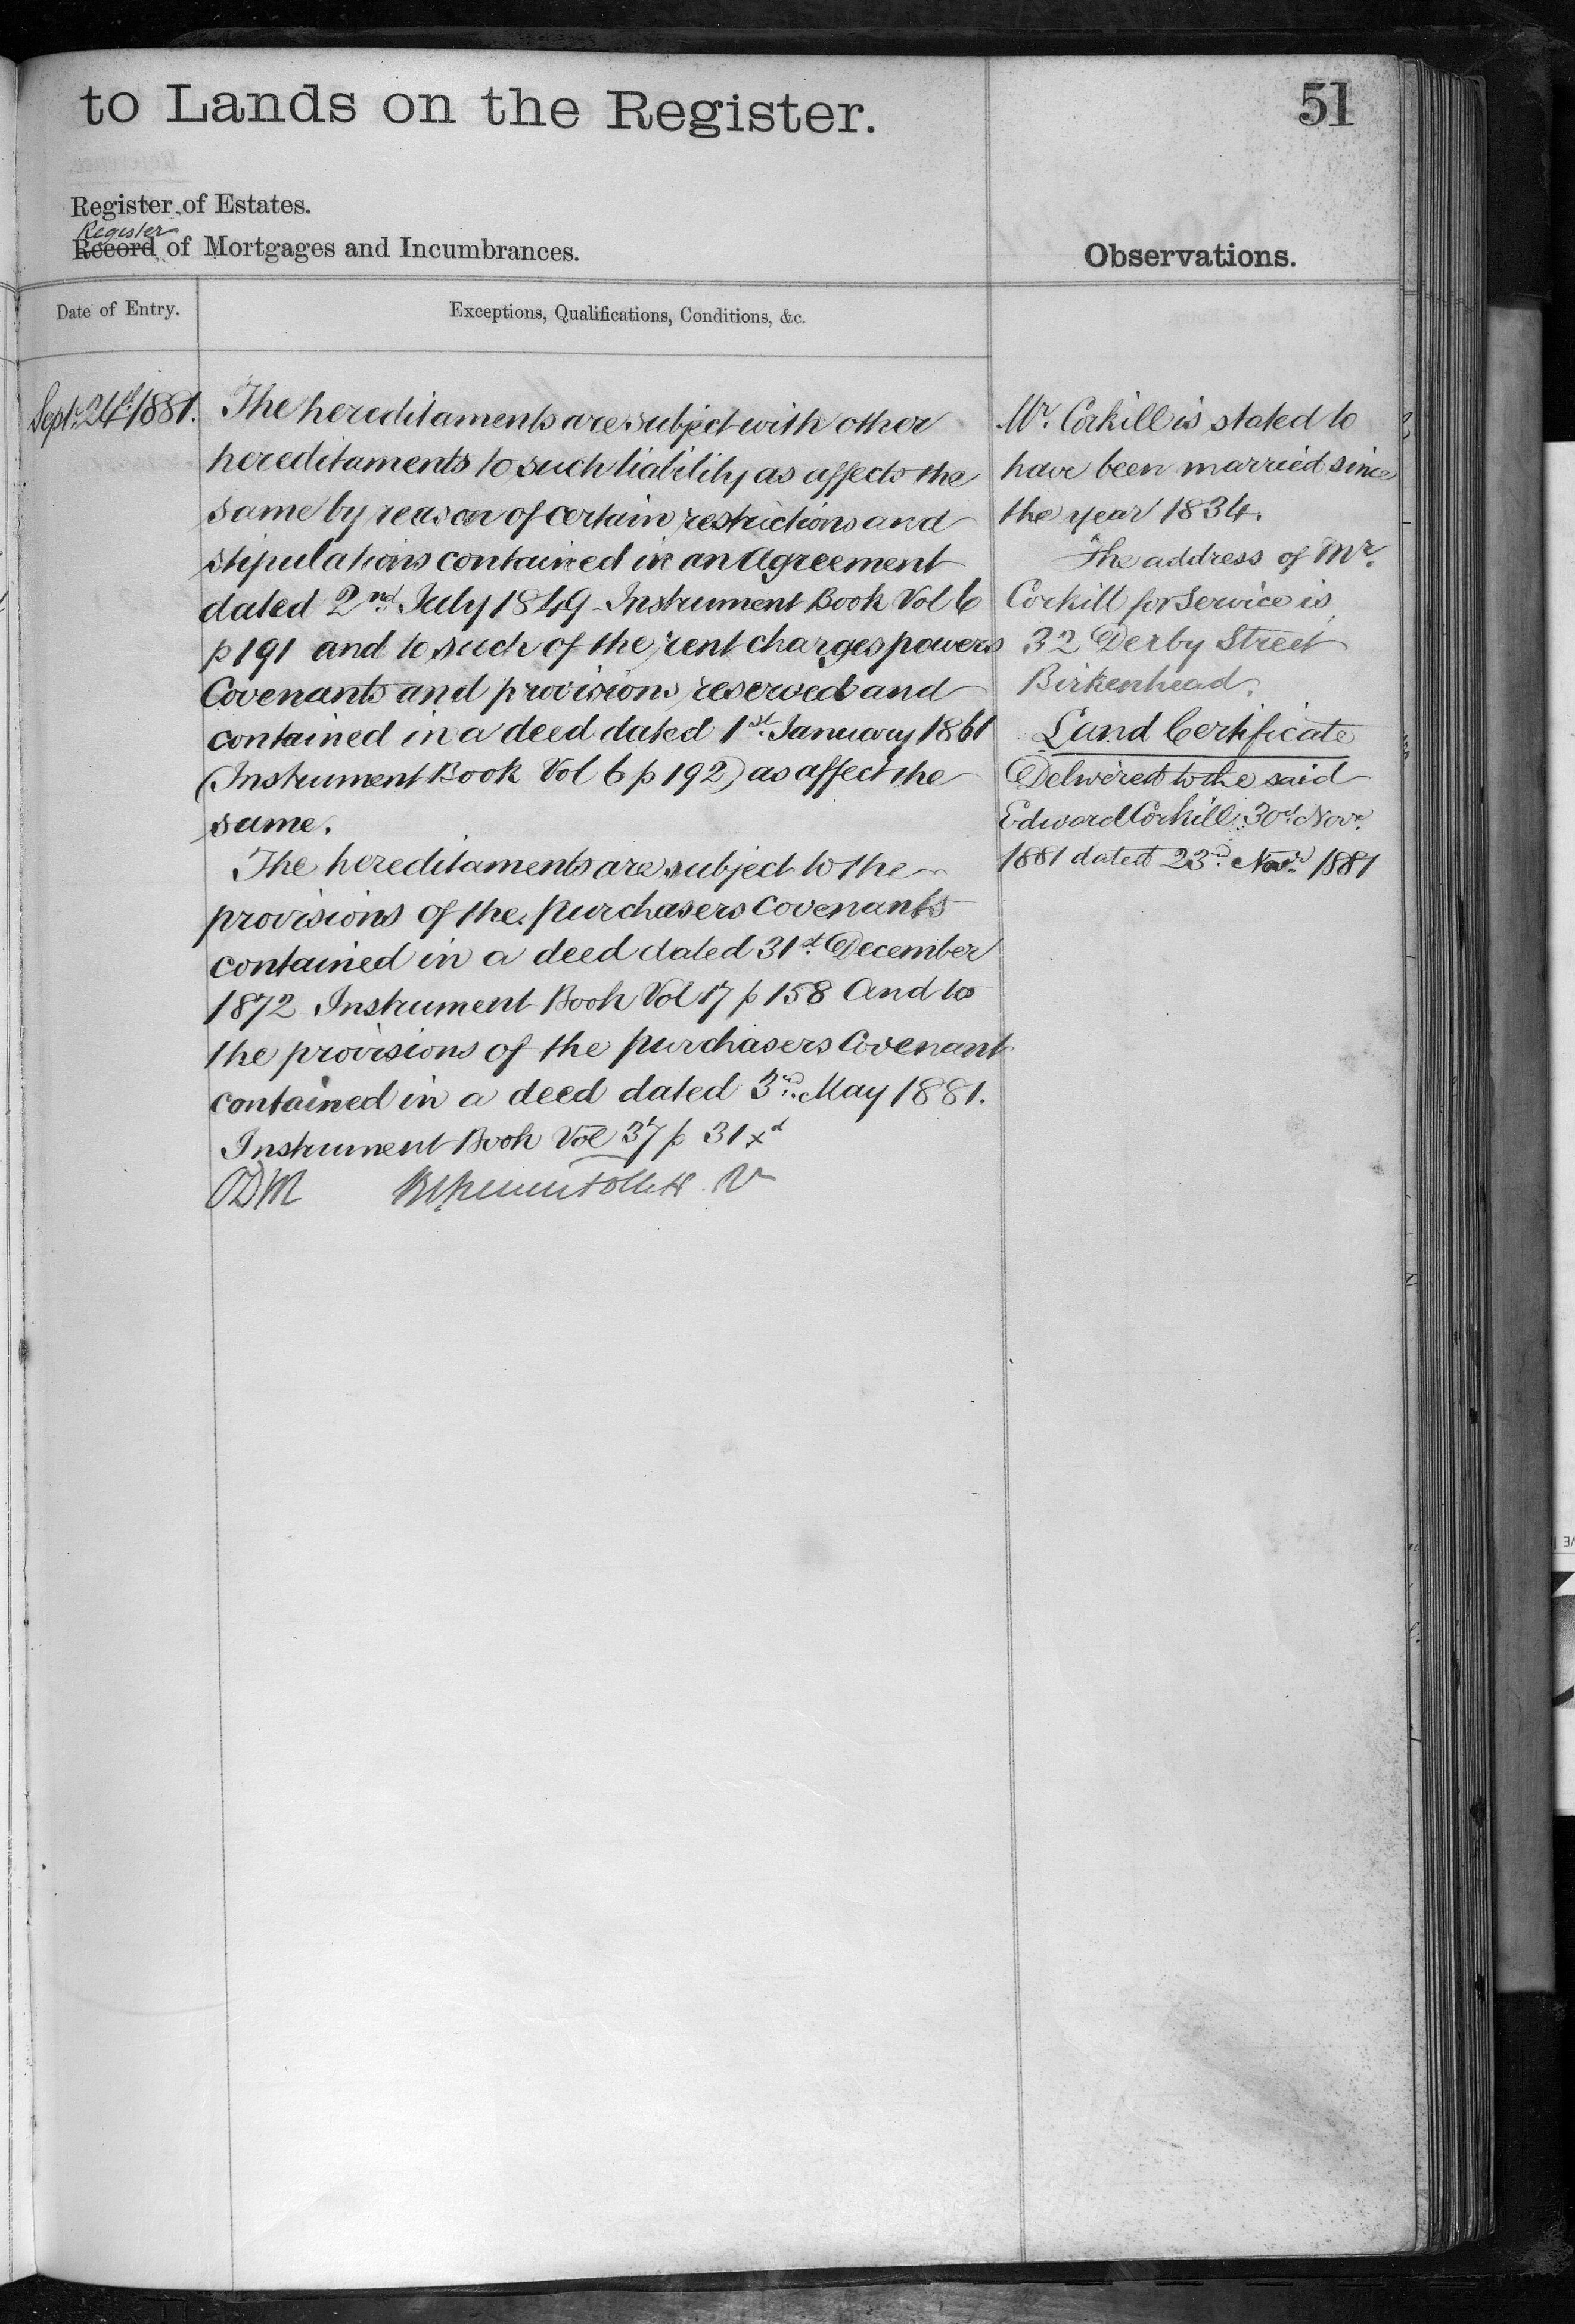 to Lands on the Register.
51
Register of Estates.
Register
Record of Mortgages and Incumbrances.
Observations.
Date of Entry.
Exceptions, Qualifications, Conditions, &c.
Septr. 24th 1881.
The hereditaments are subject with other
hereditaments to such liability as affects the
same by reason of certain restrictions and
stipulations contained in an Agreement
dated 2nd July 1849 - Instrument Book Vol 6
p 191 and to such of the rent charges powers
Covenants and provisions reserved and
contained in a deed dated 1st January 1861
(Instrument Book Vol 6 p 192) as affect the
same.
The hereditaments are subject to the
provisions of the purchasers covenants
contained in a deed dated 31st December
1872 Instrument Book Vol 17 p 158 And to
the provisions of the purchasers Covenant
contained in a deed dated 3rd May 1881.
Instrument Book Vol 37 p 31
Mr. Corkill is stated to
have been married since
the year 1834.
The address of Mr.
Corkill for Service is
32 Derby Street
Birkenhead.
Land Certificate
Delivered to the said
Edward Corkill 30th Novr.
1881 dated 23rd Novr. 1881